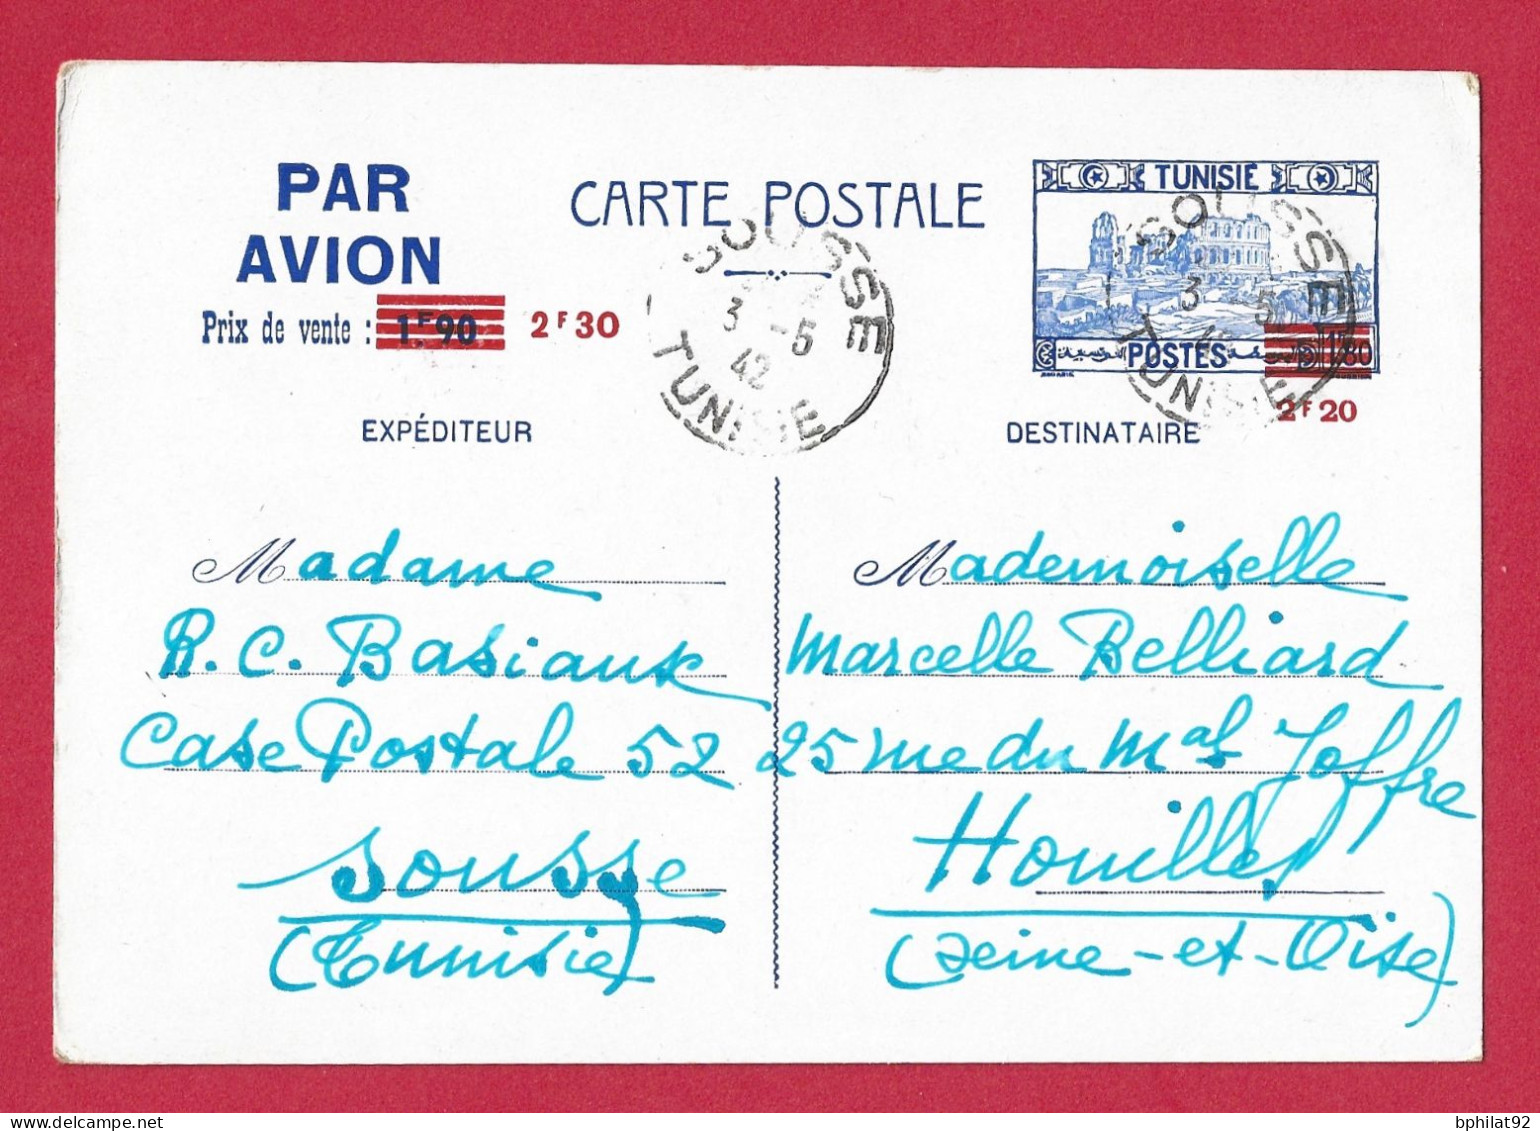 PAR
AVION
CARTE POSTALE
TUNISIE
Prix de vente : 1F90 2F30
SOUSSE
3 -5
42
TUNISIE
SOUSSE
3 -5
TUNISIE
POSTES
1F80
2F20
EXPÉDITEUR
DESTINATAIRE
Madame
R.C. Basiaux
Case Postale 52
Sousse
(Tunisie)
Mademoiselle
Marcelle Belliard
25 rue du Mal Joffre
Houilles
(Seine-et-Oise)
bphilat92